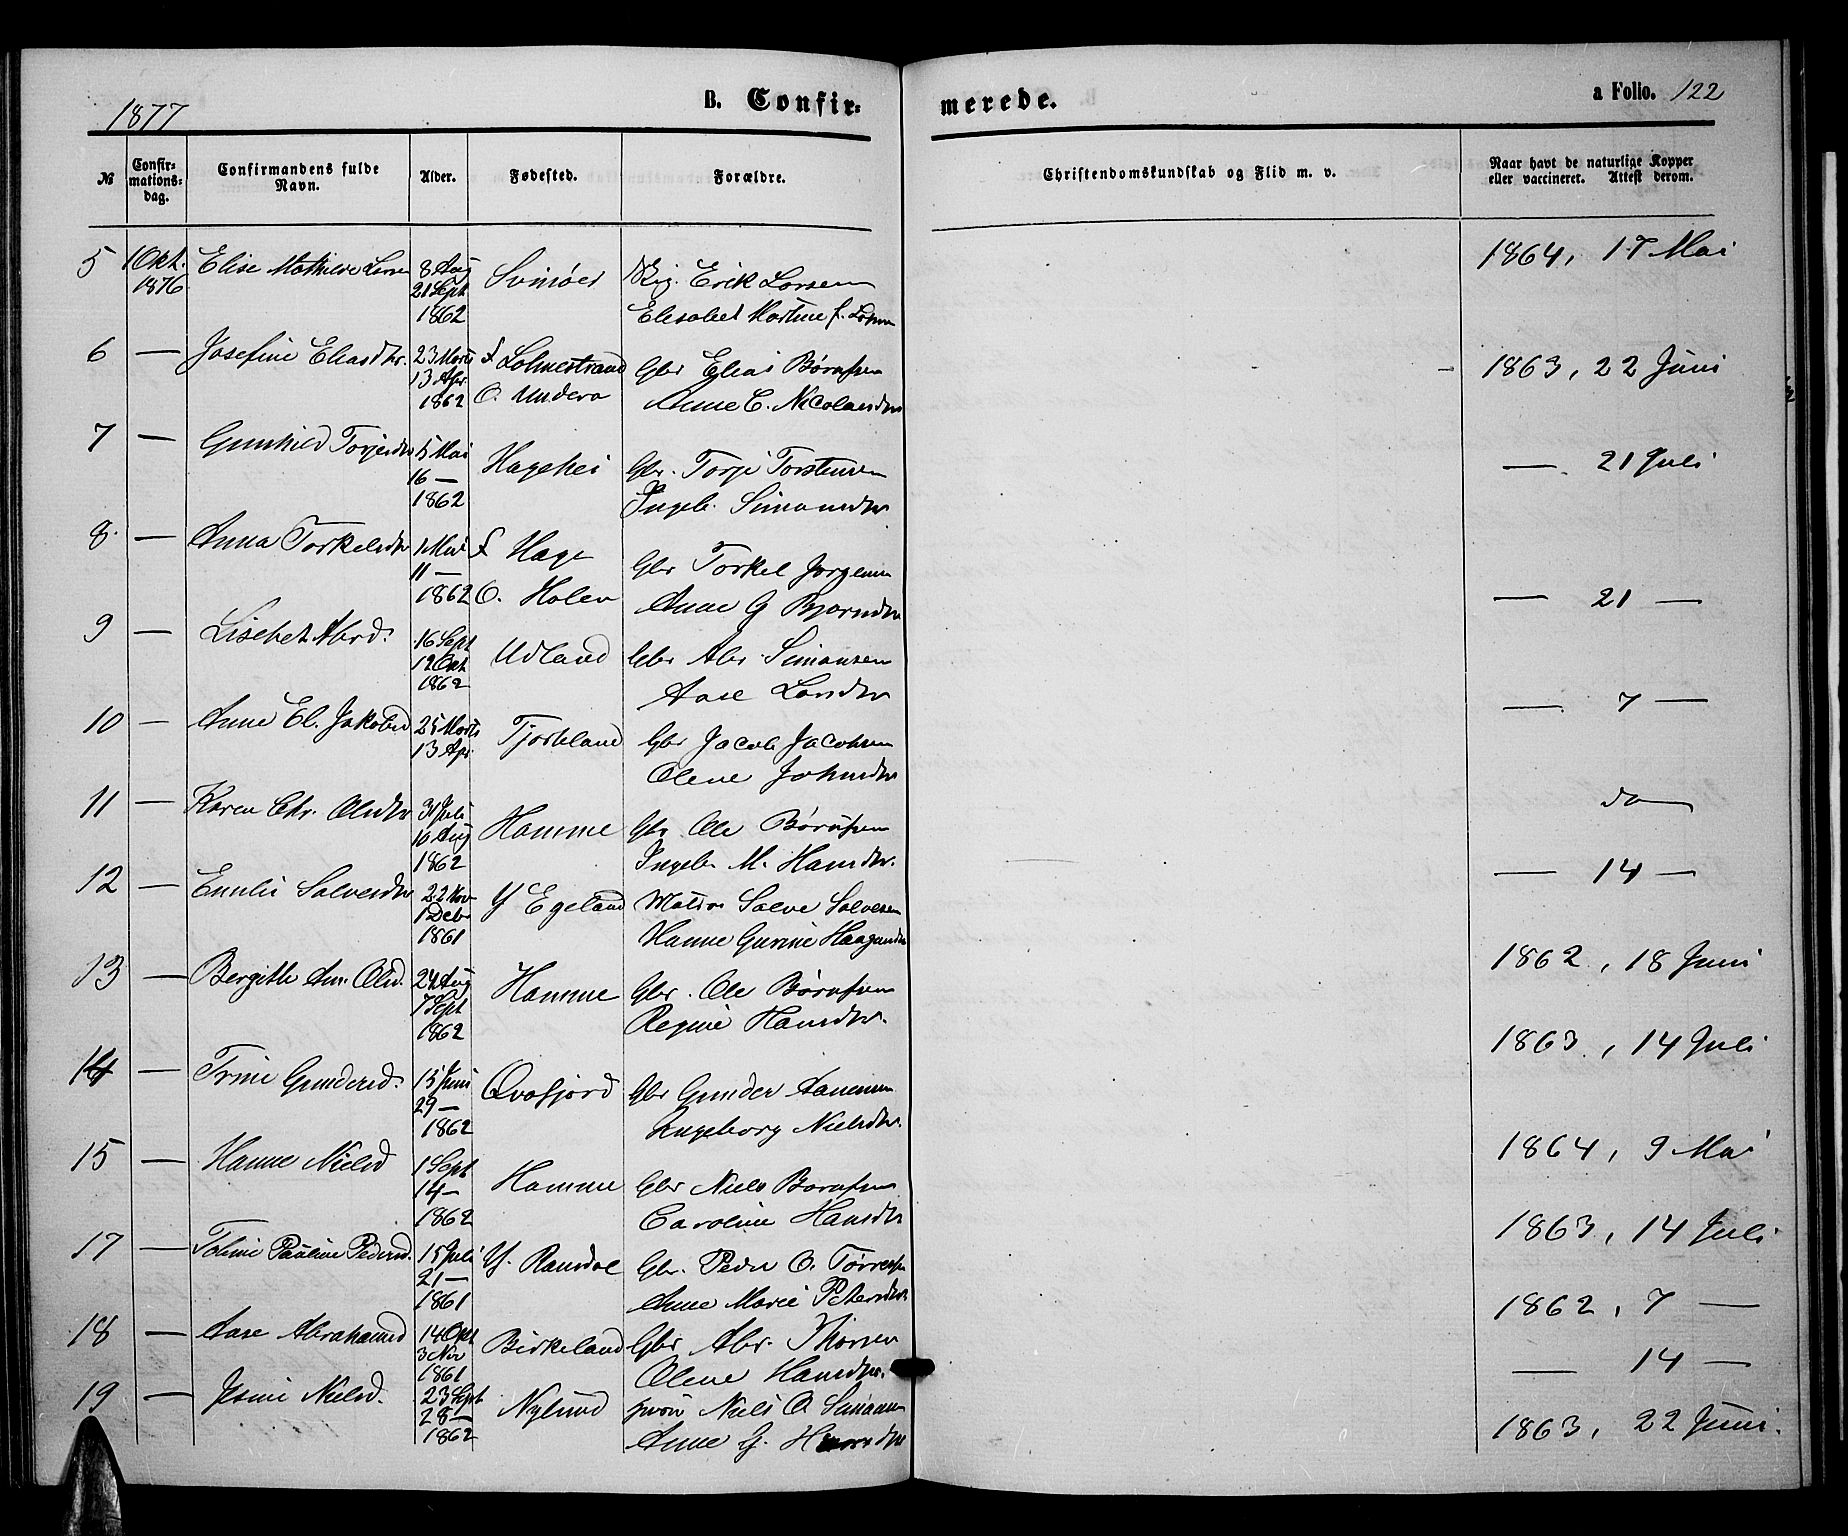 1877
B. Confir= merede.
a Folio. 122
№
Confir=
mations=
dag.
Confirmandens fulde
Navn.
Alder.
Fødested.
Forældre.
Christendomskundskab og Flid m. v.
Naar havt de naturlige Kopper
eller vaccineret. Attest derom.
5 1 Okt. Elise Mathilde 8 Aug Svinøer Erik Larsen 1864, 17 Mai
1876 21 Sept Elisabet Martine f.
1862
6 — Josefine Eliasdtr. 23 Marts f Lohnestrand Gbr Elias Børufsen 1863, 22 Juni
13 Apr O. Underø Anne C. Nicolaisdtr
1862
7 — Gunhild Torjesdtr 5 Mai Hagehei Gbr. Torje Torstensen — 21 Juli
16 — Ingeb. Simonsdtr
1862
8 — Anna Torkelsdtr 1 Mai f Hage Gbr Torkel Jørgensen — 21 —
11 — O. Holen Anne G Bjørnsdtr
1862
9 — Lisebet Abrd. 16 Sept Udland Gbr Abr. Simonsen — 7 —
12 Okt Aase Larsdtr
1862
10 — Anne El. Jakobsd 25 Marts Tjorteland Gbr Jacob Jacobsen do
13 Apr. Olene Johnsdtr
11 — Karen Chr. Olsdtr 31 Juli Hamme Gbr Ole Børufsen — 14 —
10 Aug Ingeb. M. Hansdtr.
1862
12 — Emilie Salvesdtr 22 Nov Y Egeland Matros Salve Salvesen 1862, 18 Juni
1 Deb Hanne Gurine Haagensdtr
1861
13 — Bergitte Olsd. 24 Aug Hamme Gbr. Ole Børufsen 1863, 14 Juli
7 Sept Regine Hansdtr.
1862
14 — Trine Gundersd. 15 Juni Qvafjord Gbr Gunder Aanensen 1864, 9 Mai
29 — Ingeborg Nielsdtr.
1862
15 — Hanne Nielsd 1 Sept Hamme Gbr Niels Børufsen 1863, 14 Juli
14 — Caroline Hansdtr
1862
17 — Tobine Pauline Pedersd. 15 Juli Y. Ramsdal Gbr. Peder O. Tørresen 1862, 7 —
21 — Anne Marie Petersdtr.
1861
18 — Aase Abrahamsd 14 Okt Birkeland Gbr Abr. Thorsen — 14 —
3 Nov Olene Hansdtr.
1861
19 — Nielsd. 23 Sept Nylund Niels O. Simonsen 1863, 22 Juni.
28 — Anne G.
1862